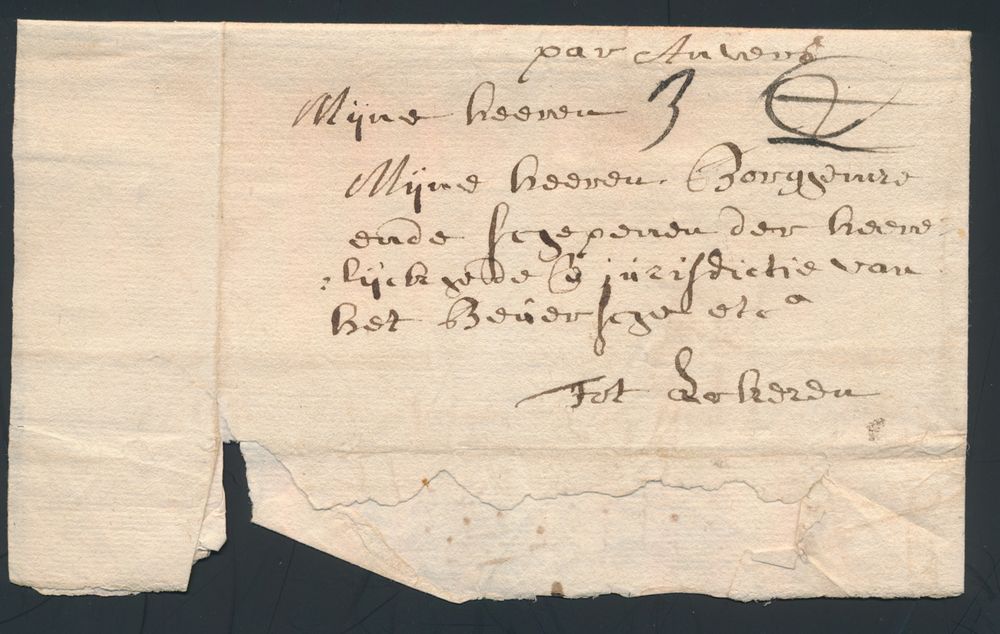 par Anvers
Mijne heeren 3
Mijne heeren Borgemre
ende schepenen der heere-
:lijckhede & jurisdictie van
het Beversche etca
Tot Lokeren